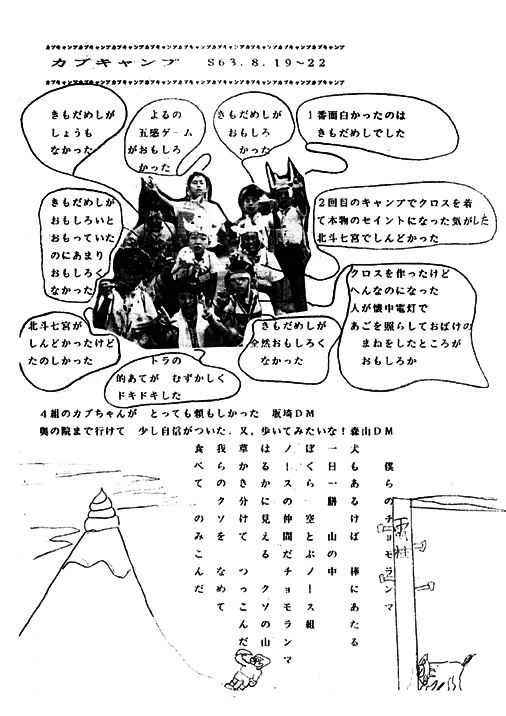 カブキャンプカブキャンプカブキャンプカブキャンプカブキャンプカブキャンプカブキャンプカブキャンプカブキャンプ
カブキャンプ S63.8.19~22
カブキャンプカブキャンプカブキャンプカブキャンプカブキャンプカブキャンプカブキャンプカブキャンプカブキャンプ
きもだめしが
しょうも
なかった
よるの
五感ゲーム
がおもしろ
かった
きもだめしが
おもしろ
かった
1番面白かったのは
きもだめしでした
きもだめしが
おもしろいと
おもっていた
のにあまり
おもしろく
なかった
2回目のキャンプでクロスを着
て本物のセイントになった気がした
北斗七宮でしんどかった
クロスを作ったけど
へんなのになった
人が懐中電灯で
あごを照らしておばけの
まねをしたところが
おもしろか
北斗七宮が
しんどかったけど
たのしかった
トラの
的あてが むずかしく
ドキドキした
きもだめしが
全然おもしろく
なかった
4組のカブちゃんが とっても頼もしかった 坂埼DM
奥の院まで行けて 少し自信がついた.又,歩いてみたいな!森山DM
僕らのチョモランマ
犬もあるけば 棒にあたる
一日一膳 山の中
ぼくら 空とぶノース組
ノースの仲間だチョモランマ
はるかに見える クソの山
草かき分けて つっこんだ
我らのクソを なめて
食べて のみこんだ
電柱